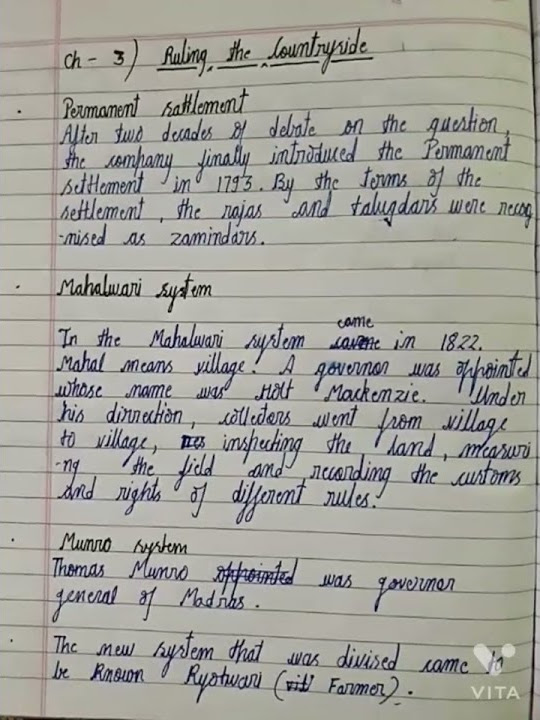 Ch - 3) Ruling the Countryside
Permanent sattlement
After two decades of debate on the question,
the company finally introduced the Permanent
settlement in 1793. By the terms of the
settlement, the rajas and talugdars were recog
-nised as zamindars.
Mahalwari system
came
In the Mahalwari system in 1822.
Mahal means village. A governor was appointed
whose name was Holt Mackenzie. Under
his dirrection, collectors went from village
to village, inspecting the land, measuri
-ng the field and recording the customs
and rights of different rules.
Munro system
Thomas Munro appointed was governor
general of Madras.
The new system that was divised came to
be known Ryotwari ( Farmer).
VITA